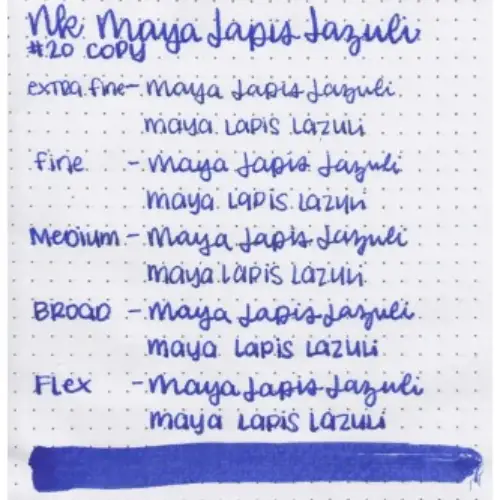 Nk Maya Lapis Lazuli
#20 COPY
extra fine - Maya Lapis Lazuli
maya Lapis Lazuli
fine - Maya Lapis Lazuli
maya Lapis Lazuli
Medium - Maya Lapis Lazuli
maya Lapis Lazuli
BROAD - Maya Lapis Lazuli
maya Lapis Lazuli
Flex - Maya Lapis Lazuli
maya Lapis Lazuli